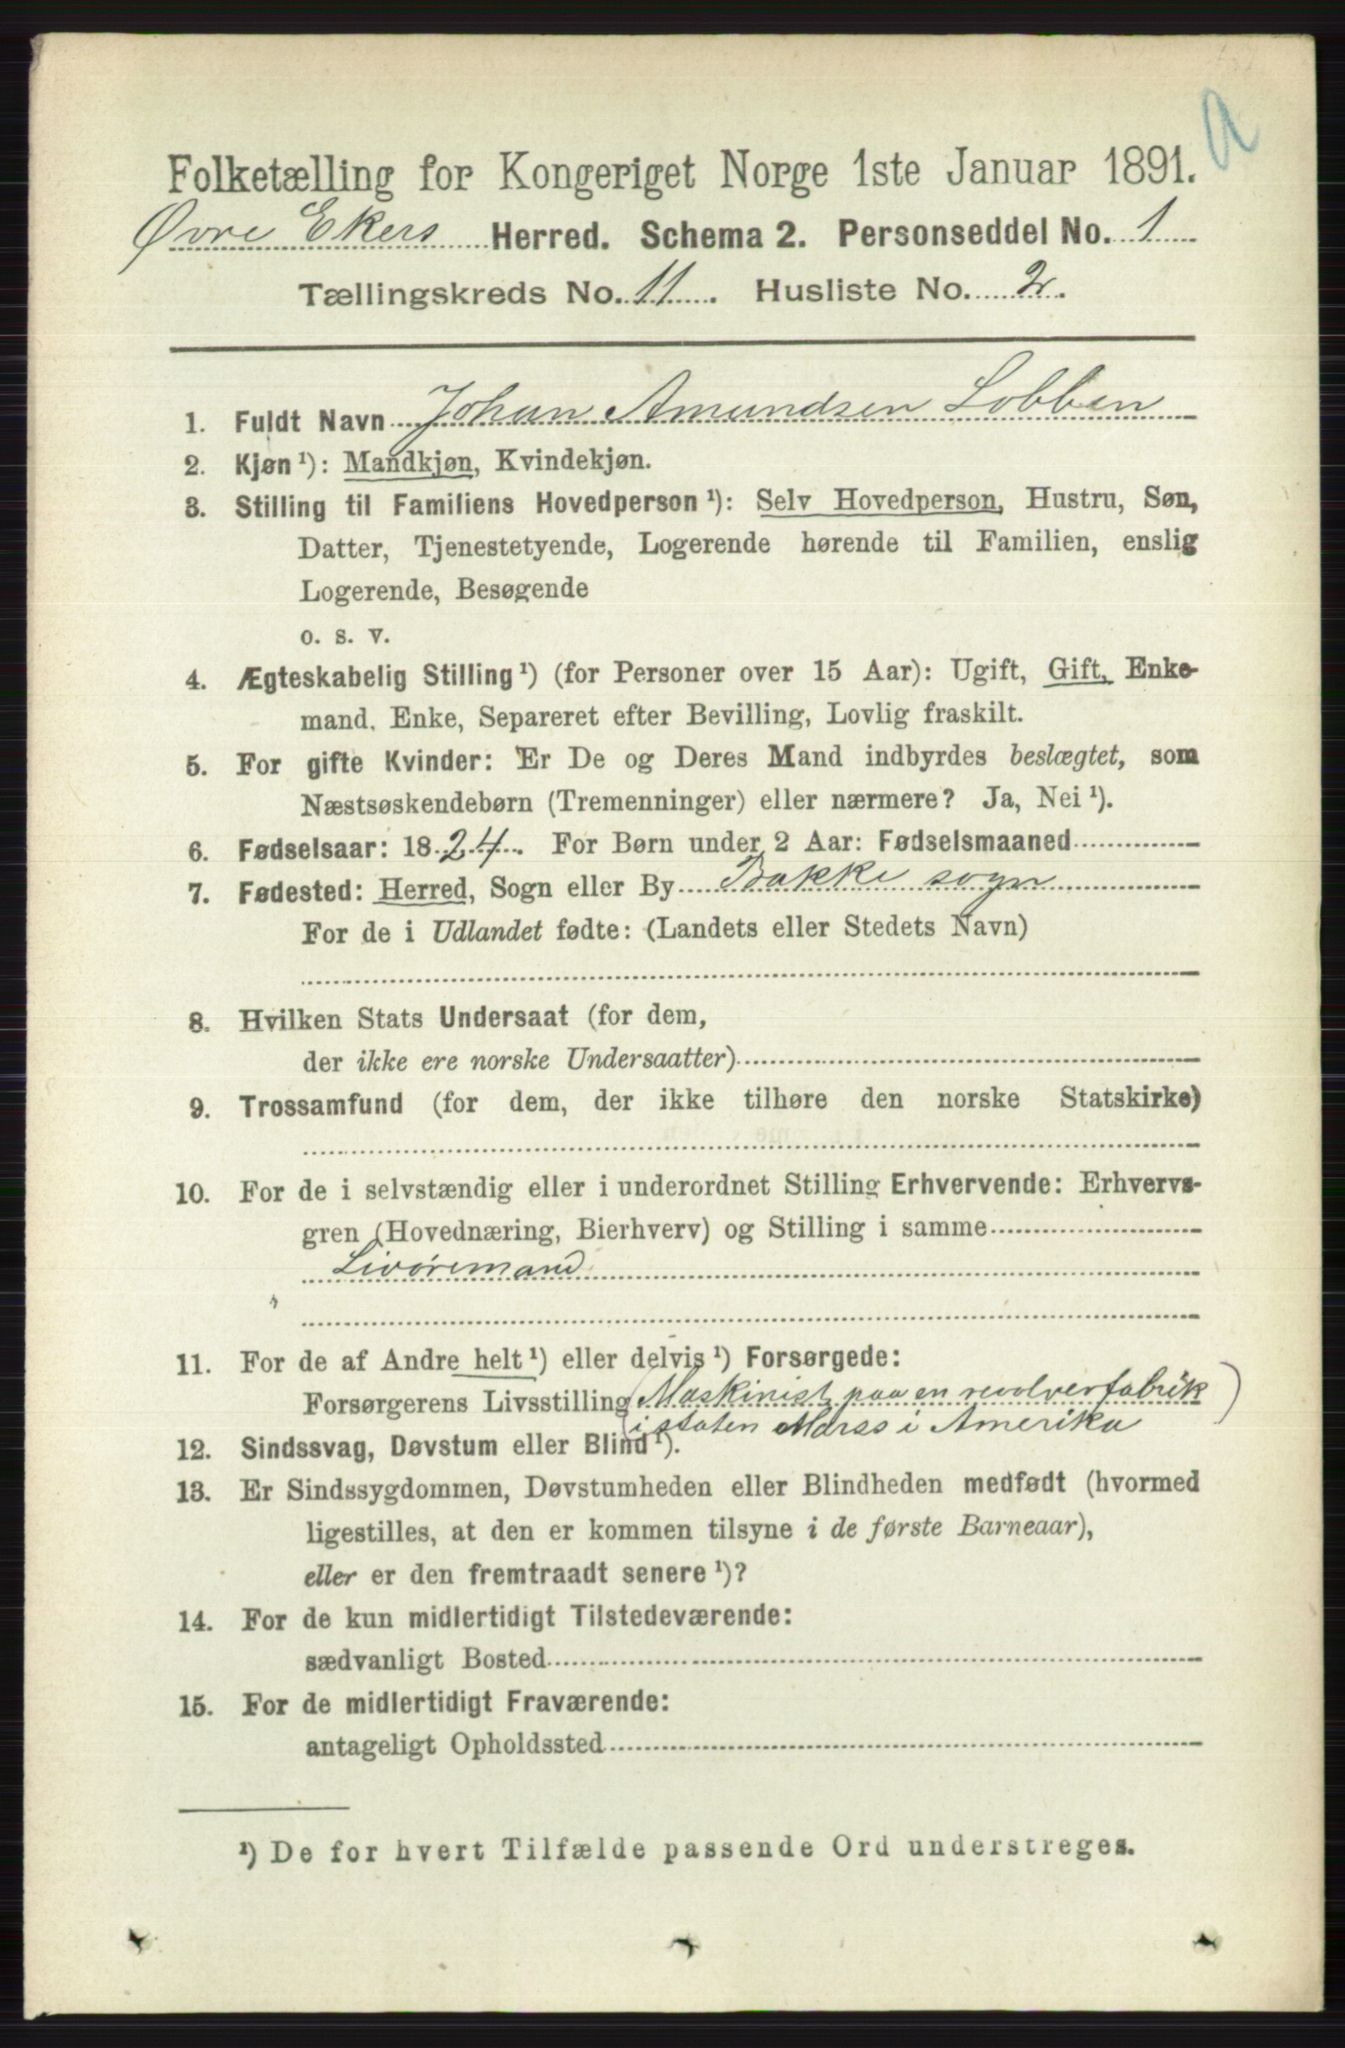 a
Folketælling for Kongeriget Norge 1ste Januar 1891.
Øvre Ekers Herred. Schema 2. Personseddel No. 1
Tællingskreds No. 11. Husliste No. 2.
1. Fuldt Navn Johan Amundsen Lobben
2. Kjøn¹): Mandkjøn, Kvindekjøn.
3. Stilling til Familiens Hovedperson¹): Selv Hovedperson, Hustru, Søn,
Datter, Tjenestetyende, Logerende hørende til Familien, enslig
Logerende, Besøgende
o. s. v.
4. Ægteskabelig Stilling¹) (for Personer over 15 Aar): Ugift, Gift, Enke-
mand, Enke, Separeret efter Bevilling, Lovlig fraskilt.
5. For gifte Kvinder: Er De og Deres Mand indbyrdes beslægtet, som
Næstsøskendebørn (Tremenninger) eller nærmere? Ja, Nei¹).
6. Fødselsaar: 1824. For Børn under 2 Aar: Fødselsmaaned
7. Fødested: Herred, Sogn eller By Bakke sogn
For de i Udlandet fødte: (Landets eller Stedets Navn)
8. Hvilken Stats Undersaat (for dem,
der ikke ere norske Undersaatter)
9. Trossamfund (for dem, der ikke tilhøre den norske Statskirke)
10. For de i selvstændig eller i underordnet Stilling Erhvervende: Erhvervs-
gren (Hovednæring, Bierhverv) og Stilling i samme
Livøremand
11. For de af Andre helt¹) eller delvis¹) Forsørgede:
Forsørgerens Livsstilling (Maskinist paa en revolverfabrik
i staten Marss i Amerika)
12. Sindssvag, Døvstum eller Blind¹).
13. Er Sindssygdommen, Døvstumheden eller Blindheden medfødt (hvormed
ligestilles, at den er kommen tilsyne i de første Barneaar),
eller er den fremtraadt senere¹)?
14. For de kun midlertidigt Tilstedeværende:
sædvanligt Bosted
15. For de midlertidigt Fraværende:
antageligt Opholdssted
¹) De for hvert Tilfælde passende Ord understreges.